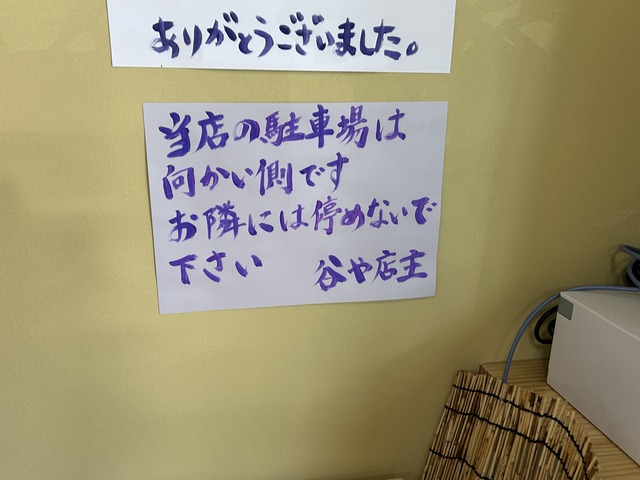 ありがとうございました。
当店の駐車場は
向かい側です
お隣には停めないで
下さい　谷や店主